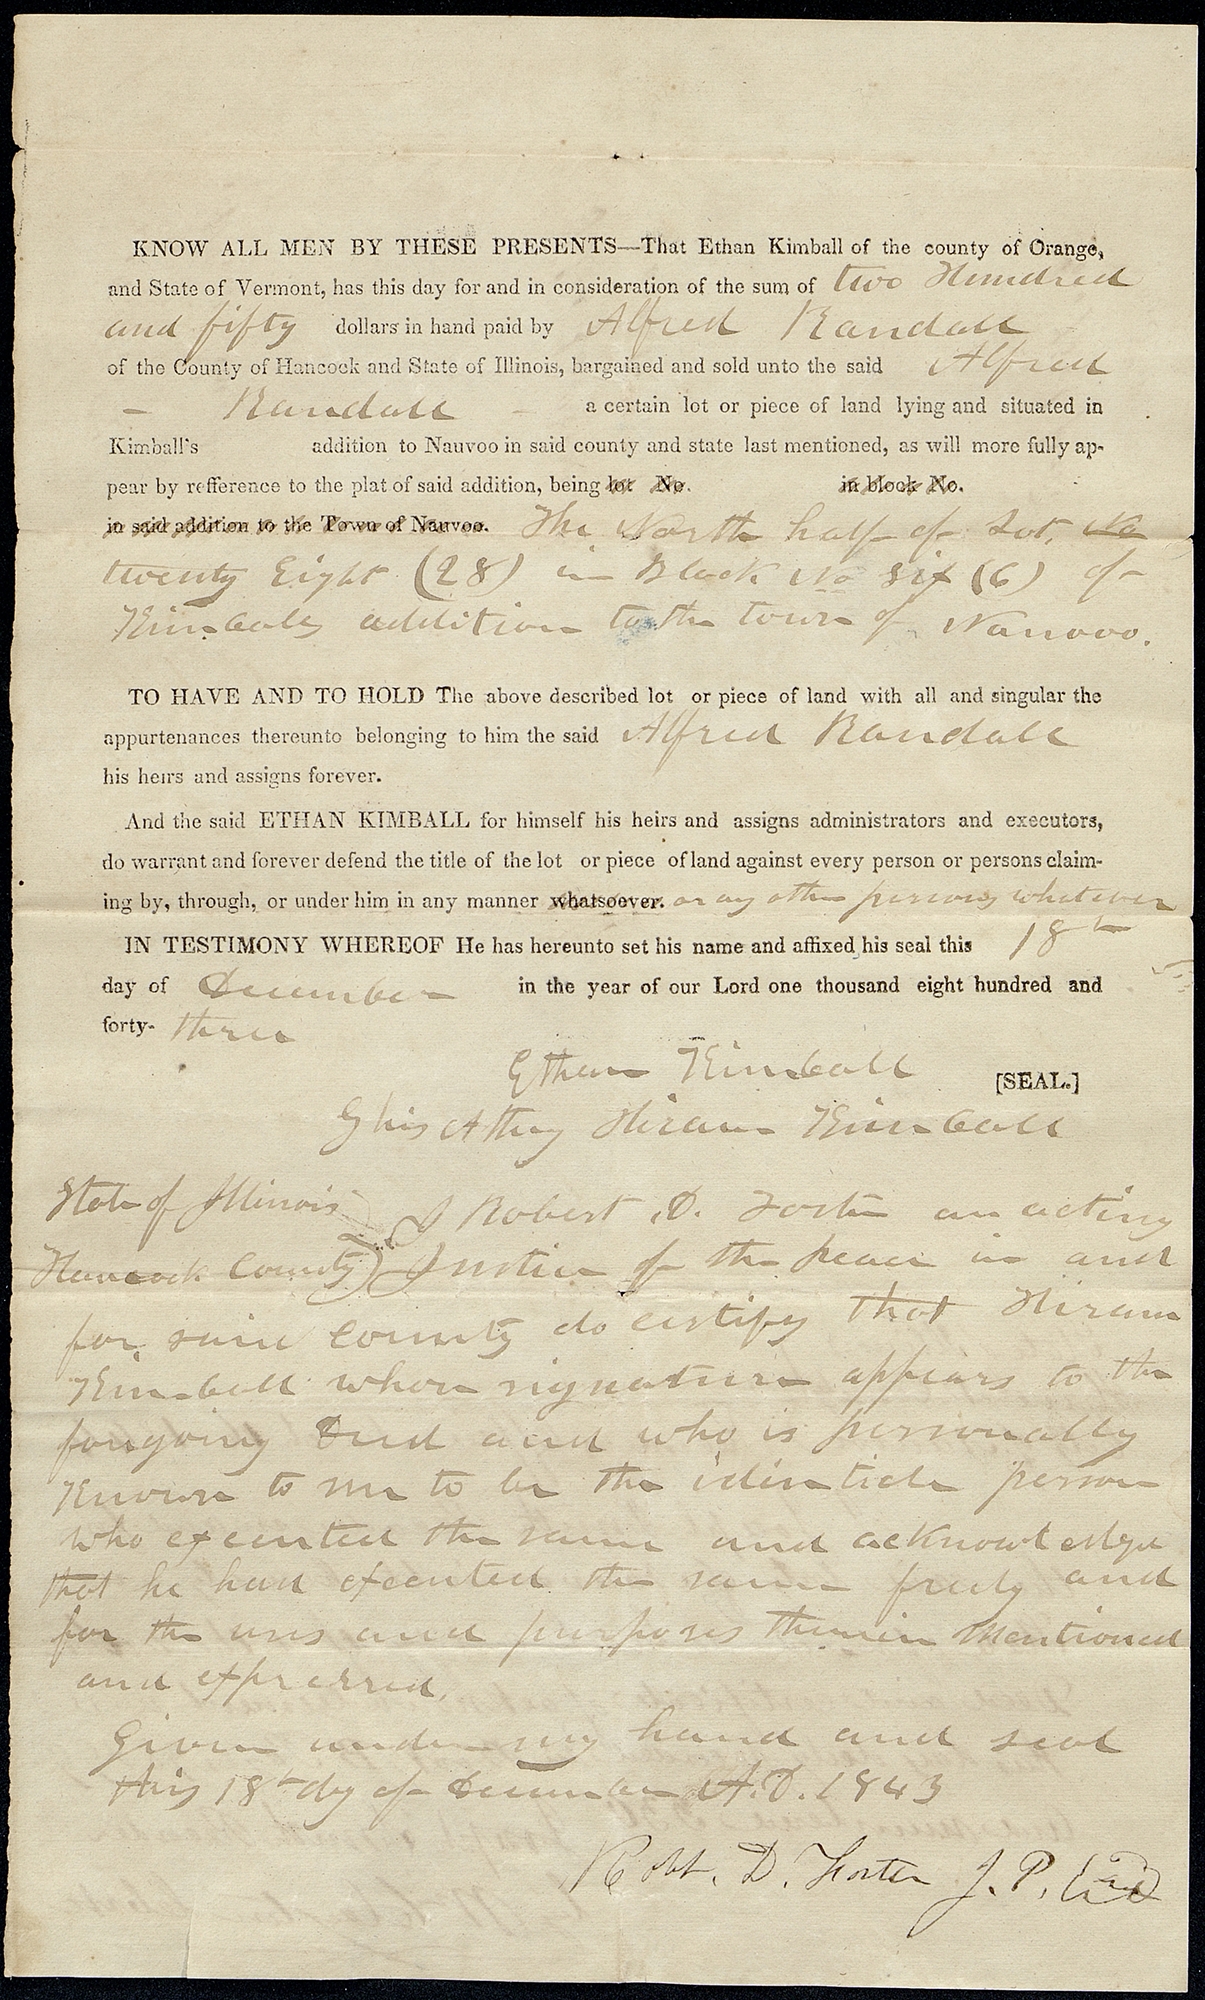 KNOW ALL MEN BY THESE PRESENTS—That Ethan Kimball of the county of Orange,
and State of Vermont, has this day for and in consideration of the sum of two Hundred
and fifty dollars in hand paid by Alfred Randall
of the County of Hancock and State of Illinois, bargained and sold unto the said Alfred
- Randall - a certain lot or piece of land lying and situated in
Kimball's addition to Nauvoo in said county and state last mentioned, as will more fully ap-
pear by refference to the plat of said addition, being lot No. in block No.
in said addition to the Town of Nauvoo. The North half of Lot, No
twenty Eight (28) in Block No six (6) of
Kimballs addition to the town of Nauvoo.
TO HAVE AND TO HOLD The above described lot or piece of land with all and singular the
appurtenances thereunto belonging to him the said Alfred Randall
his heirs and assigns forever.
And the said ETHAN KIMBALL for himself his heirs and assigns administrators and executors,
do warrant and forever defend the title of the lot or piece of land against every person or persons claim-
ing by, through, or under him in any manner whatsoever. or any other persons whatever
IN TESTIMONY WHEREOF He has hereunto set his name and affixed his seal this 18th
day of December in the year of our Lord one thousand eight hundred and
forty- three
Ethan Kimball [SEAL.]
By his Atty Hiram Kimball
State of Illinois) I Robert D. Foster an acting
Hancock County) Justice of the peace in and
for said County do certify that Hiram
Kimball whose signature appears to the
forgoing Deed and who is personally
Known to me to be the identicle person
who executed the same and acknowledged
that he had executed the same freely and
for the uses and purposes therein Mentioned
and expressed.
Given under my hand and seal
this 18th dy of December A.D. 1843
Robt. D. Foster J. P. (seal)